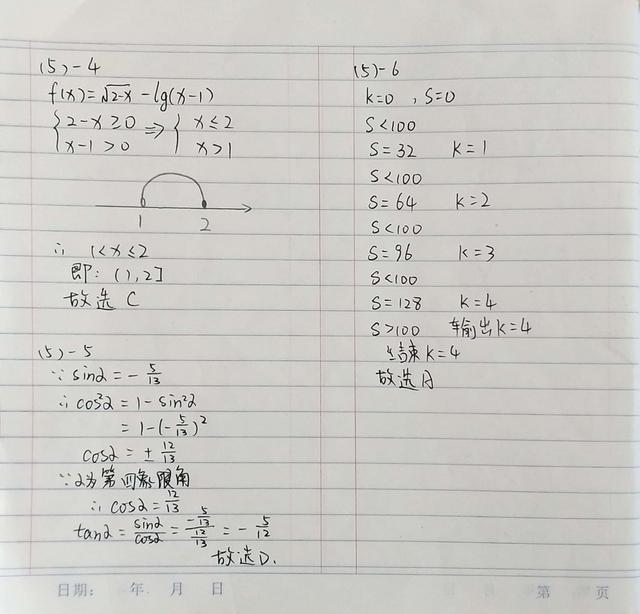 (5)-4
f(x)=√2-x -lg(x-1)
{2-x≥0 ⇒ {x≤2
x-1>0 x>1
1 2
∴ 1<x≤2
即: (1,2]
故选 C
(5)-5
∵ sinα = -5/13
∴ cos²α = 1-sin²α
= 1-(-5/13)²
cosα = ± 12/13
∵ α为第四象限角
∴ cosα = 12/13
tanα = sinα/cosα = (-5/13)/(12/13) = -5/12
故选D.
(5)-6
k=0 , S=0
S<100
S=32 k=1
S<100
S=64 k=2
S<100
S=96 k=3
S<100
S=128 k=4
S>100 输出k=4
结束k=4
故选A
日期: 年 月 日 第 页